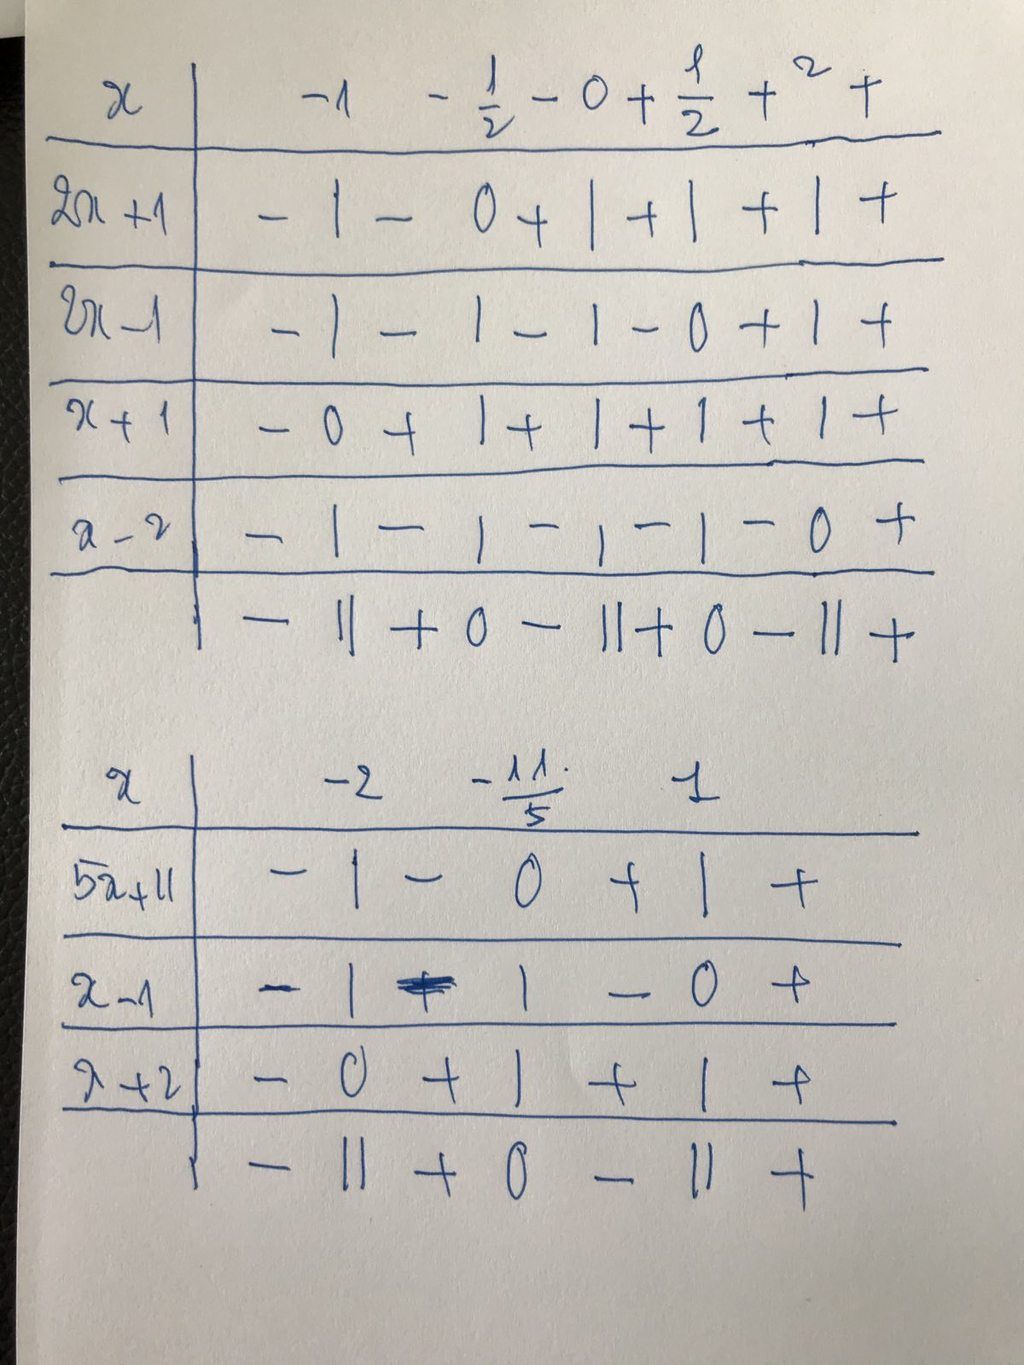 x | -1 - -1/2 - 0 + 1/2 + 2 +
2x+1 | - | - 0 + | + | + | +
2x-1 | - | - | - | - 0 + | +
x+1 | - 0 + | + | + | + | +
x-2 | - | - | - | - | - 0 +
| - || + 0 - || + 0 - || +
x | -2 -11/5 1
5x+11 | - | - 0 + | +
x-1 | - | - | - 0 +
x+2 | - 0 + | + | +
| - || + 0 - || +